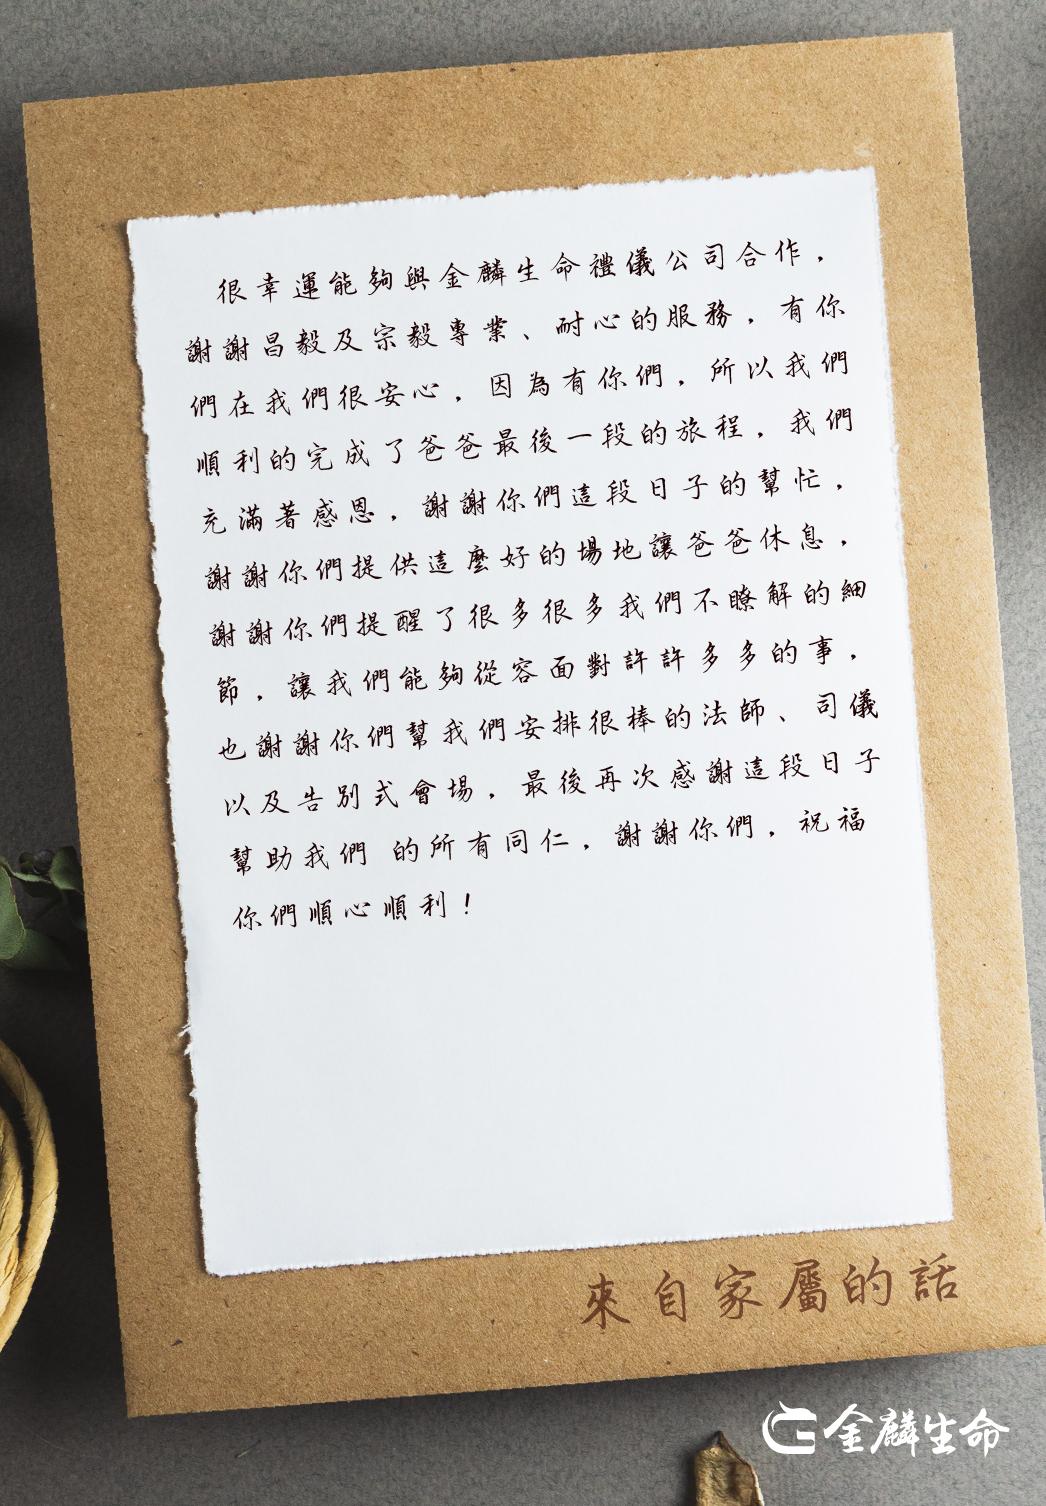 很幸運能夠與金麟生命禮儀公司合作，
謝謝昌毅及宗毅專業、耐心的服務，有你
們在我們很安心，因為有你們，所以我們
順利的完成了爸爸最後一段的旅程，我們
充滿著感恩，謝謝你們這段日子的幫忙，
謝謝你們提供這麼好的場地讓爸爸休息，
謝謝你們提醒了很多很多我們不瞭解的細
節，讓我們能夠從容面對許許多多的事，
也謝謝你們幫我們安排很棒的法師、司儀
以及告別式會場，最後再次感謝這段日子
幫助我們 的所有同仁，謝謝你們，祝福
你們順心順利！
來自家屬的話
金麟生命